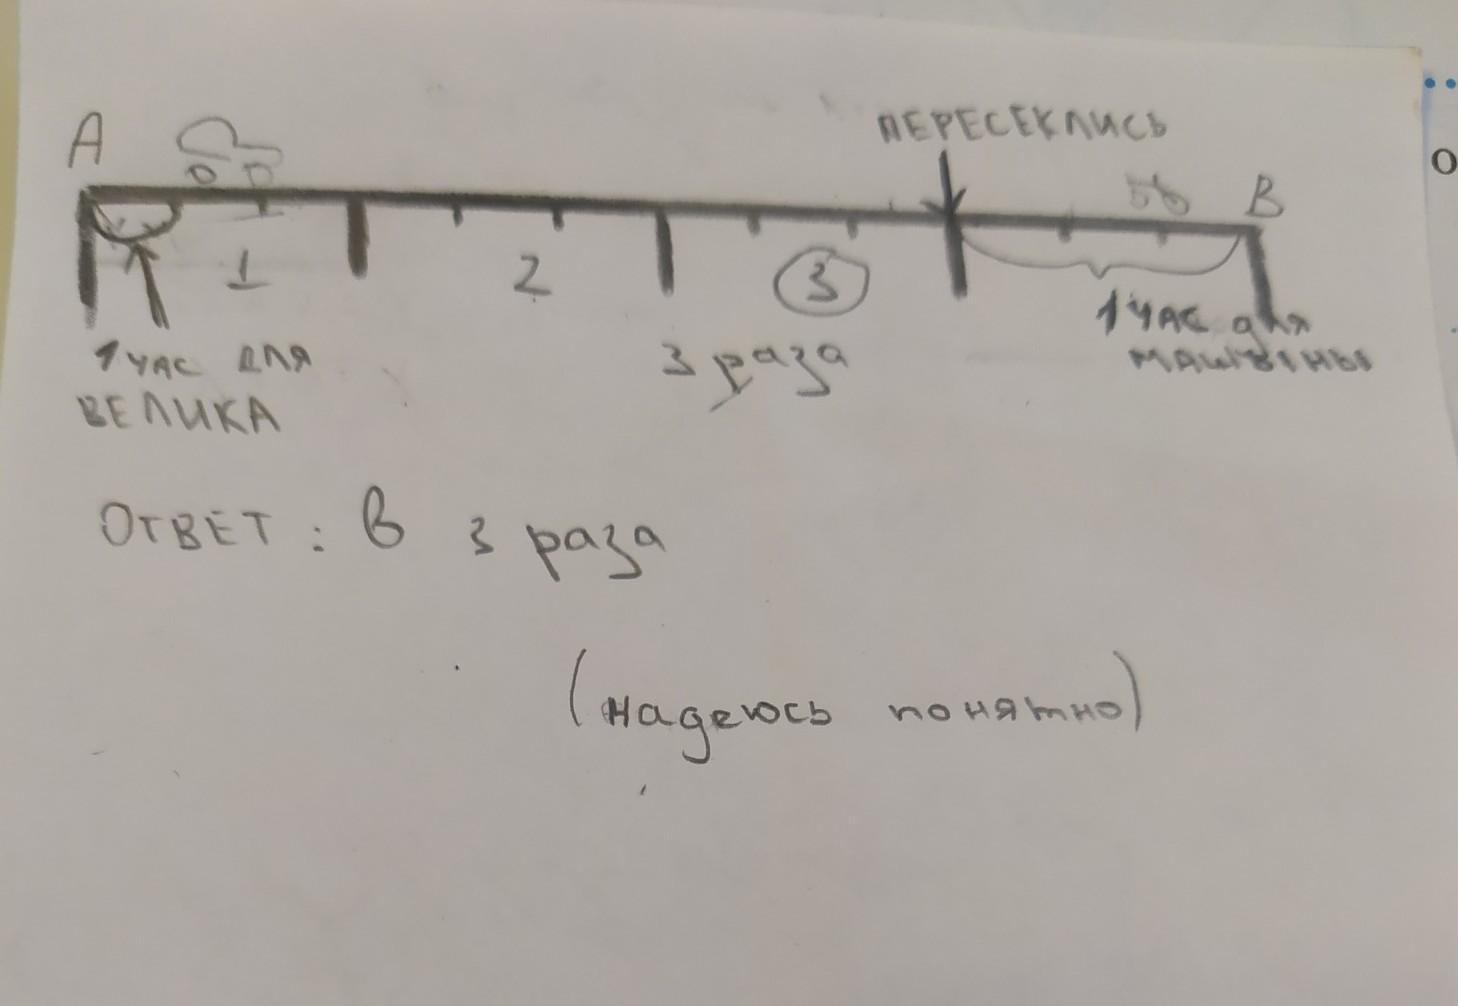 ПЕРЕСЕКЛИСЬ
А
В
1
2
3
1 ЧАС ДЛЯ
ВЕЛИКА
3 раза
1 ЧАС для
МАШИНЫ
ОТВЕТ: В 3 раза
(надеюсь понятно)